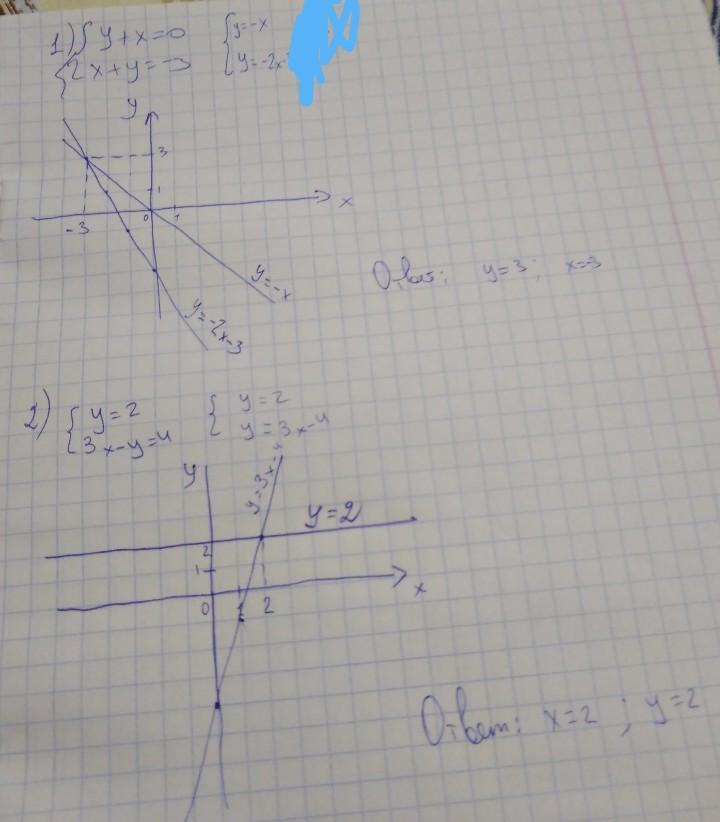 1) { y+x=0 { y=-x
2x+y=-3 y=-2x-
y
3
1
-3 0 1 x
y=-x
y=-2x-3
Ответ: y=3; x=-3
2) { y=2 { y=2
3x-y=4 y=3x-4
y
y=3x-4
y=2
2
1
0 1 2 x
Ответ: x=2 ; y=2